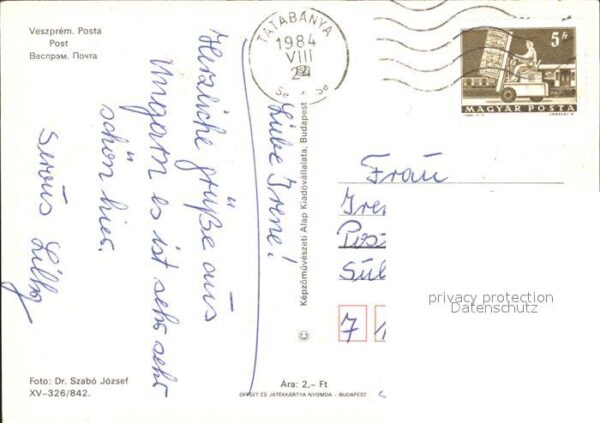 Veszprém. Posta
Post
Веспрэм. Почта
TATABÁNYA
1984
VIII
5 Ft
MAGYAR POSTA
Liebe Irene!
Herzliche grüße aus
Ungarn es ist sehr sehr
schön hier.
Servus Lilly
Képzőművészeti Alap Kiadóvállalata, Budapest
Frau
Ire
Pos
Sü
7 1
privacy protection
Datenschutz
Foto: Dr. Szabó József
XV-326/842.
Ára: 2,- Ft
OFFSET ÉS JÁTÉKKÁRTYA NYOMDA - BUDAPEST